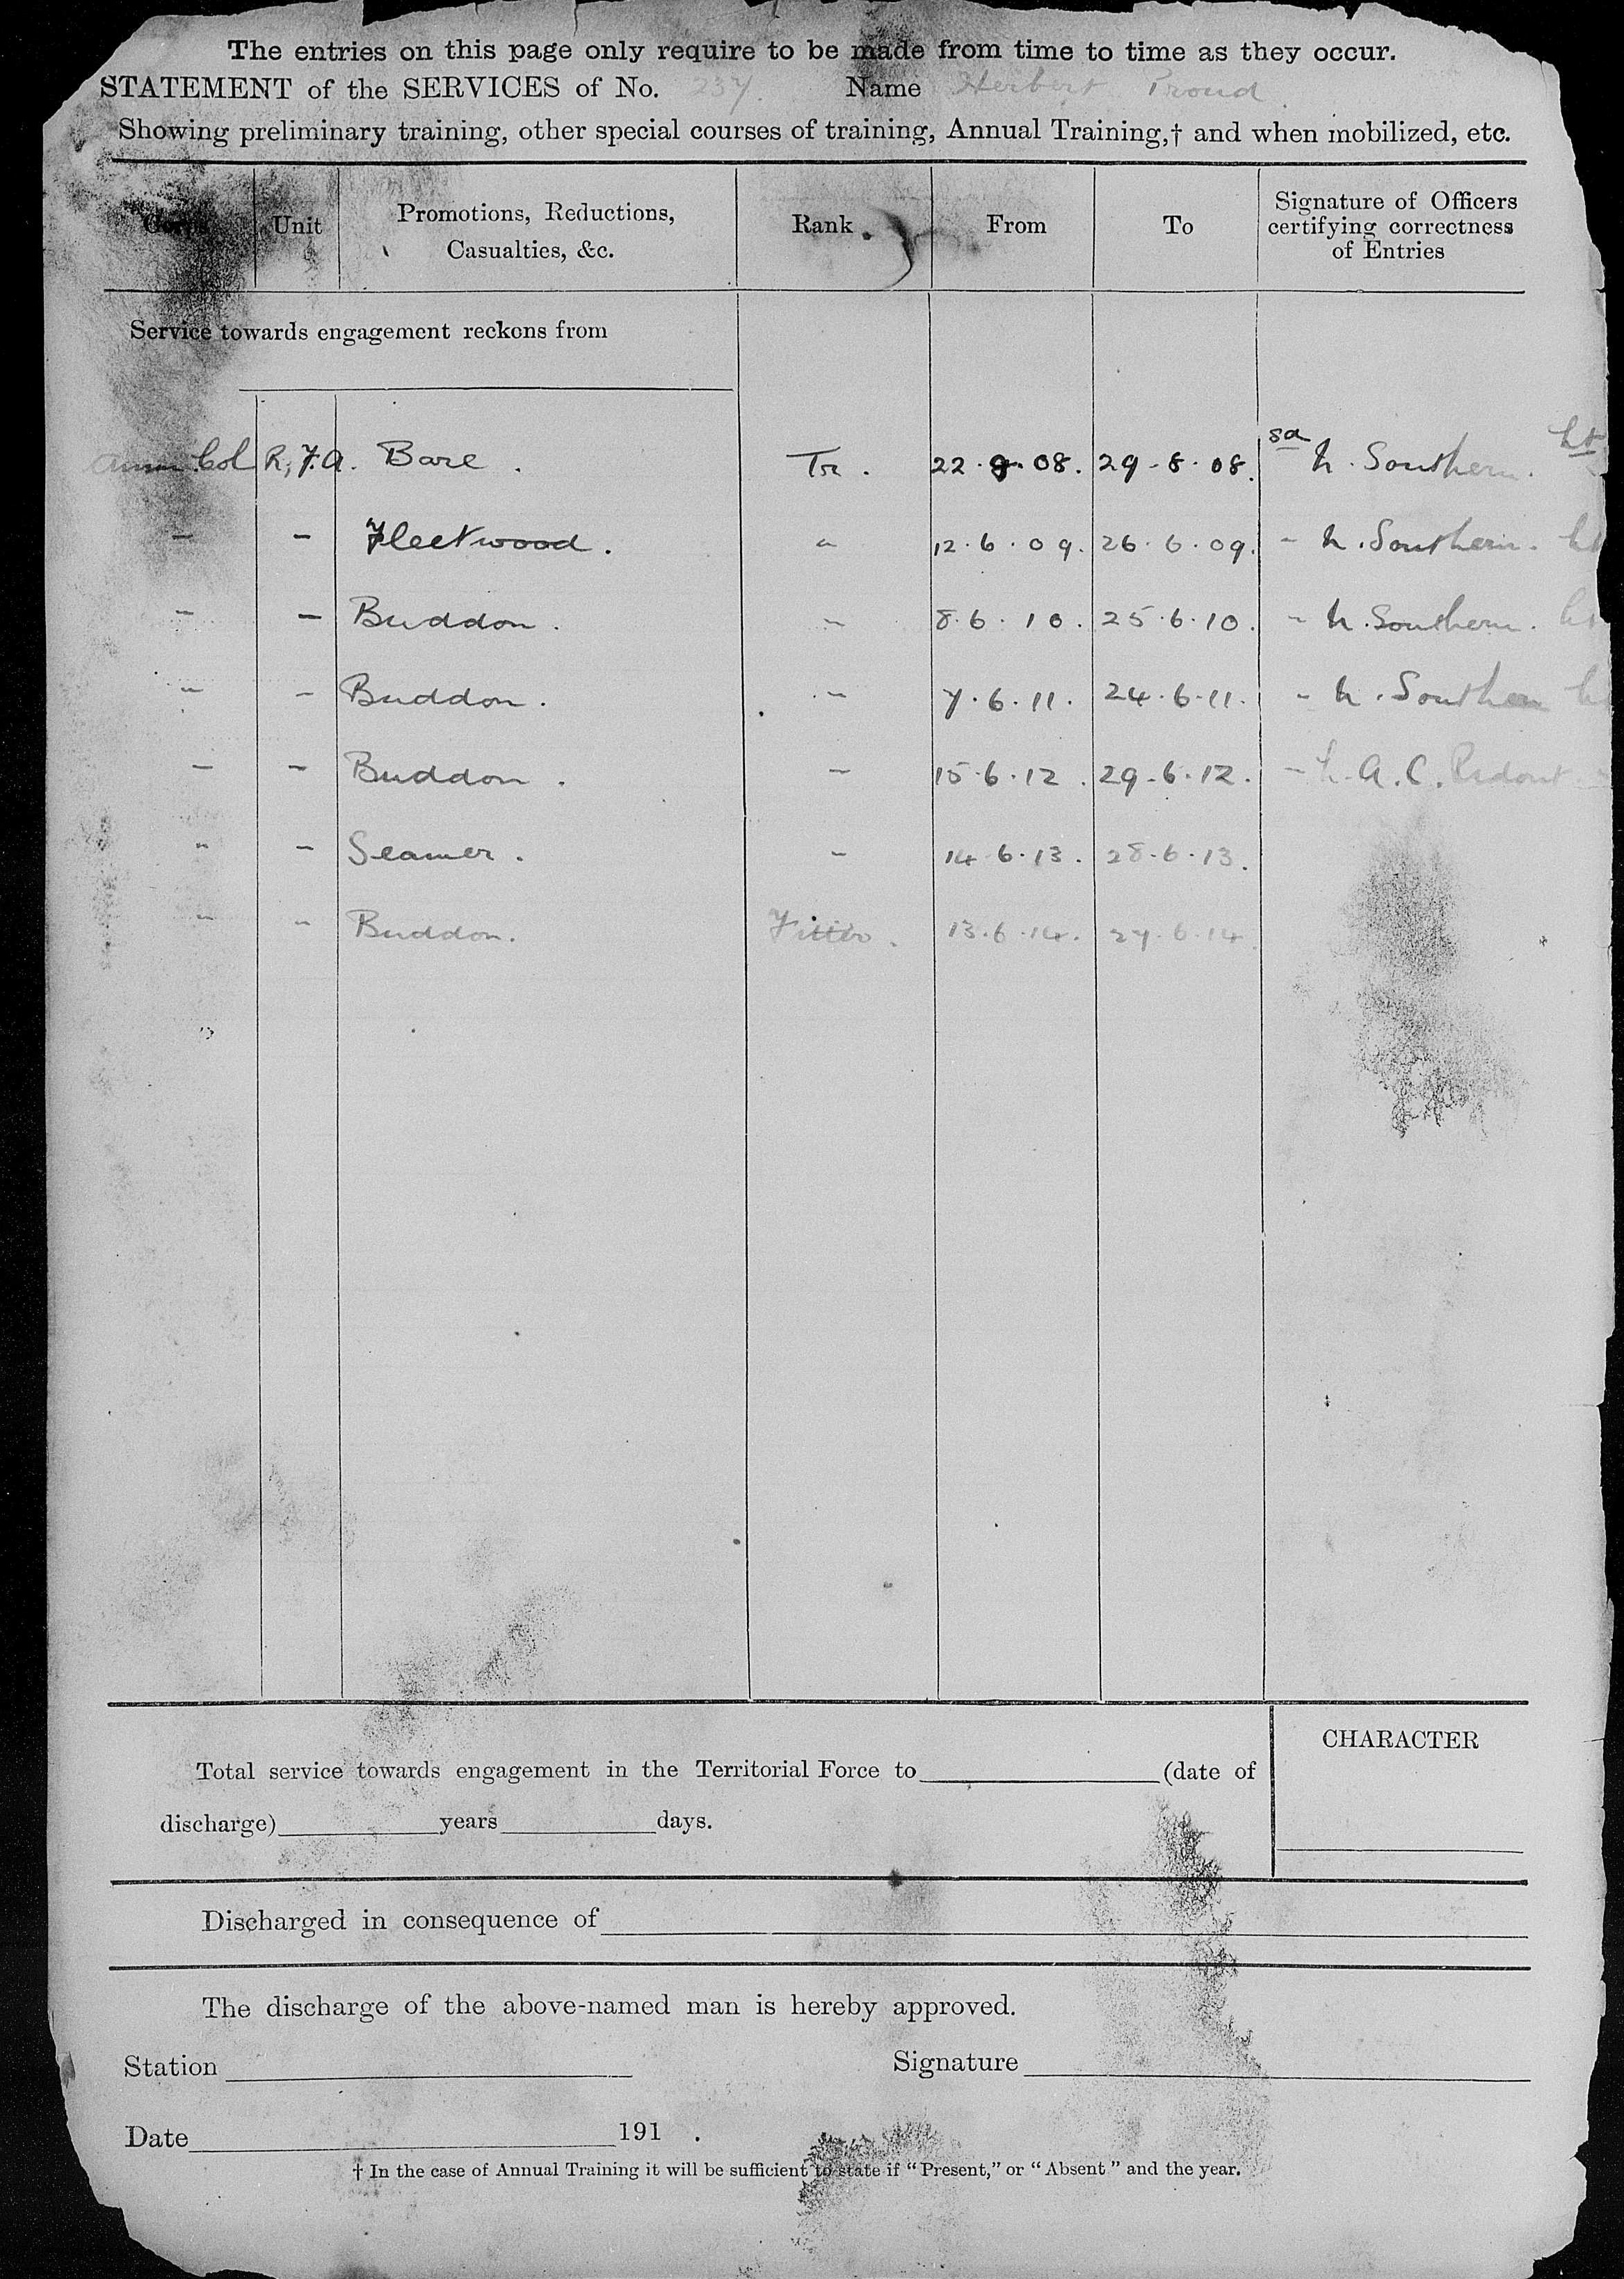 The entries on this page only require to be made from time to time as they occur.
STATEMENT of the SERVICES of No. 237. Name Herbert Proud.
Showing preliminary training, other special courses of training, Annual Training,† and when mobilized, etc.
Corps Unit Promotions, Reductions, Casualties, &c. Rank From To Signature of Officers certifying correctness of Entries
Service towards engagement reckons from
Amm. Col R.F.A. Bare. Tr. 22.8.08. 29-8.08. sd h. Southern. Lt
" " Fleetwood. " 12.6.09. 26.6.09. " h. Southern. Lt
" " Buddon. " 8.6.10. 25.6.10. " h. Southern. Lt
" " Buddon. " 7.6.11. 24.6.11. " h. Southern
" " Buddon. " 15.6.12. 29-6.12. " A. C.
" " Seamer. " 14.6.13. 28.6.13.
" " Buddon. Fitter. 13.6.14. 27.6.14
CHARACTER
Total service towards engagement in the Territorial Force to (date of
discharge) years days.
Discharged in consequence of
The discharge of the above-named man is hereby approved.
Station Signature
Date 191 .
† In the case of Annual Training it will be sufficient to state if "Present," or "Absent" and the year.